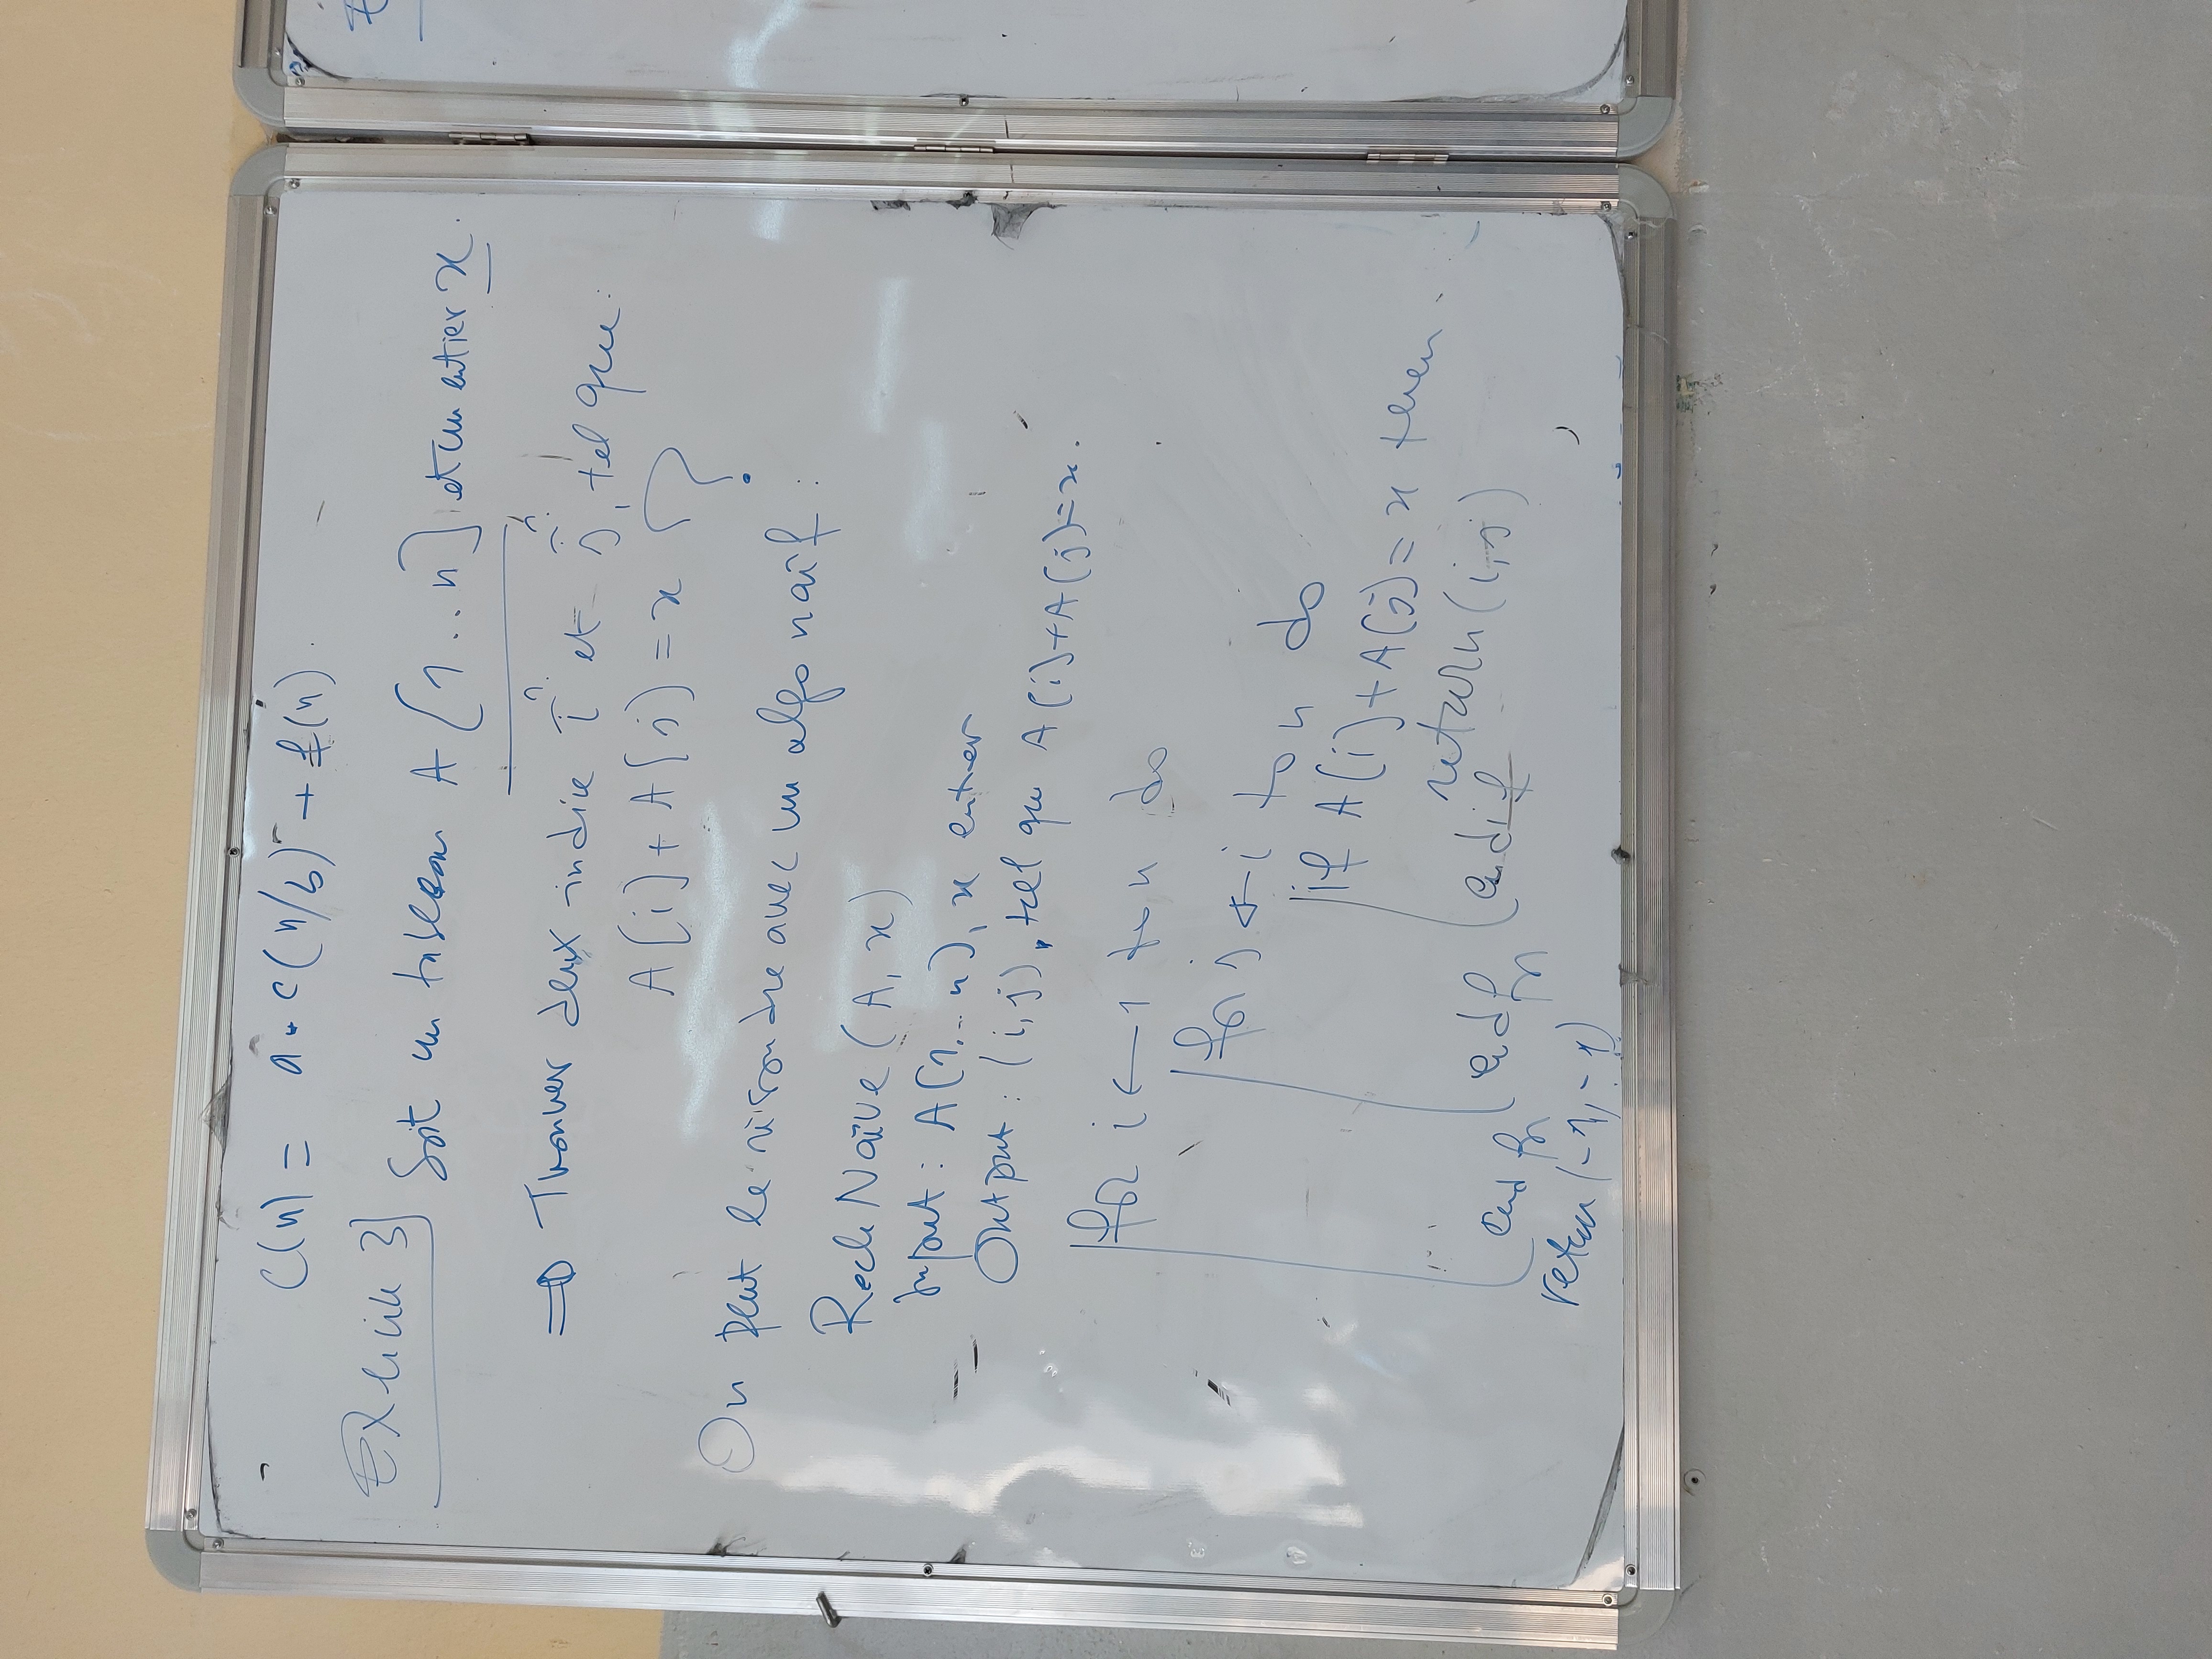 C(n) = a . C(n/b) + f(n).
Exercice 3] Soit un tableau A[1..n] et un entier x.
=> Trouver deux indice i et j, tel que:
A[i] + A[j] = x ?
On peut le résoudre avec un algo naïf :
RechNaïve (A, x)
Input : A[1..n], x entier
Output : (i,j), tel que A[i]+A[j]=x.
for i ← 1 to n do
for j ← i to n do
if A[i]+A[j]=x then
return (i,j)
endfor endfor endif
return (-1,-1)